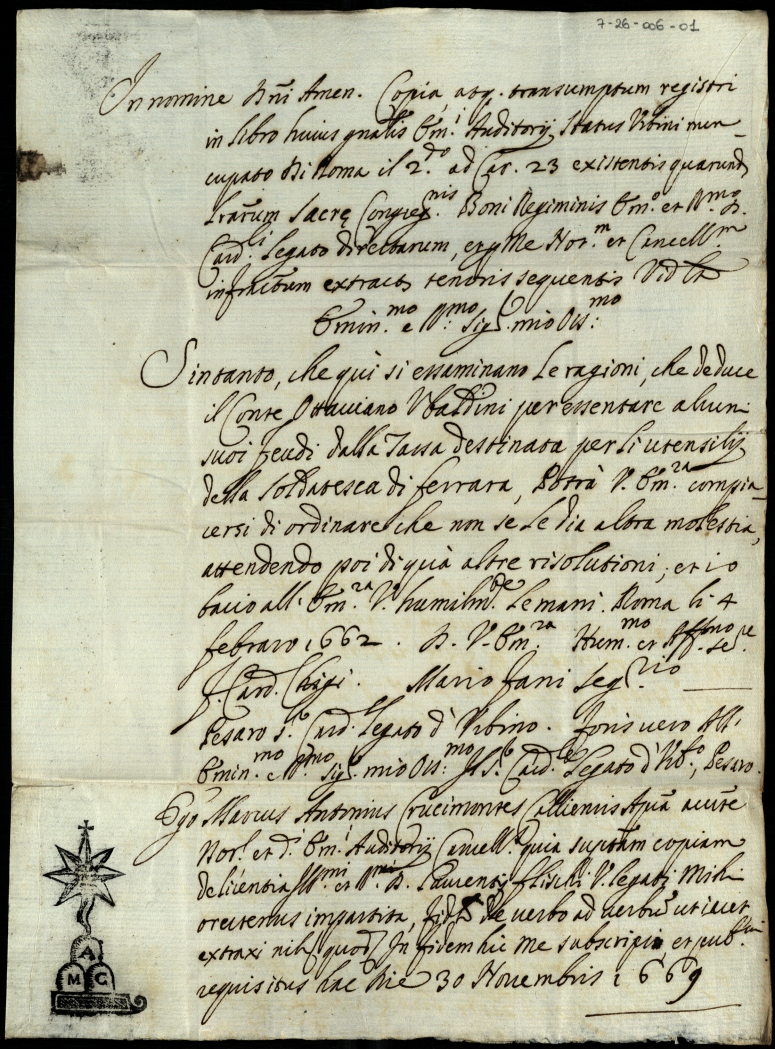 7-26-006-01
In nomine Dñi Amen. Copia, atq. transumptum registri
in libro huius gnâlis Em.i Auditorij Status Urbini nun-
cupato di Roma il 2.do ad Car. 23 existentis quarund
lrarum Sacrę Congreg.nis Boni Regiminis Em.o et R.mo D.
Card.li Legato directarum, et p me Not.m et Cancell.m
infractum extract tenoris sequentis Vid.lt
Emin.mo e R.mo Sig.r mio Oss.mo
Sintanto, che quì si essaminano le ragioni, che deduce
il Conte Ottaviano Ubaldini per essentare alcuni
suoi feudi dalla Tassa destinata per li utensilij
della Soldatesca di ferrara, Potrà V. Em.za compia-
cersi di ordinare che non se le dia altra molestia,
attendendo poi di quà altre risolutioni, et io
bacio all' Em.za V. humilm.te le mani. Roma li 4
febraro 1662. D. V. Em.za Hum.mo et Aff.mo Se.re
f. Card. Chigi. Mario fani Seg.rio
Pesaro S.r Card. Legato d' Urbino. Foris vero All'
Emin.mo e R.mo Sig.r mio Oss.mo Il S.r Card.le Legato d' Urb.o, Pesaro.
Ego Marcus Antonius Crucimontes Calliensis Apca aucte
Not. et d.i Em.i Auditorij Cancell.s quia suptam copiam
de licentia Ill.mi et R.mi D. Laurentij flischi V. legati Mihi
oretenus impartita, de verbo ad verbu ut iacet
extraxi nih quod In fidem hic me subscripsi et pub.
requisitus hac die 30 Novembris 1669
A
M C